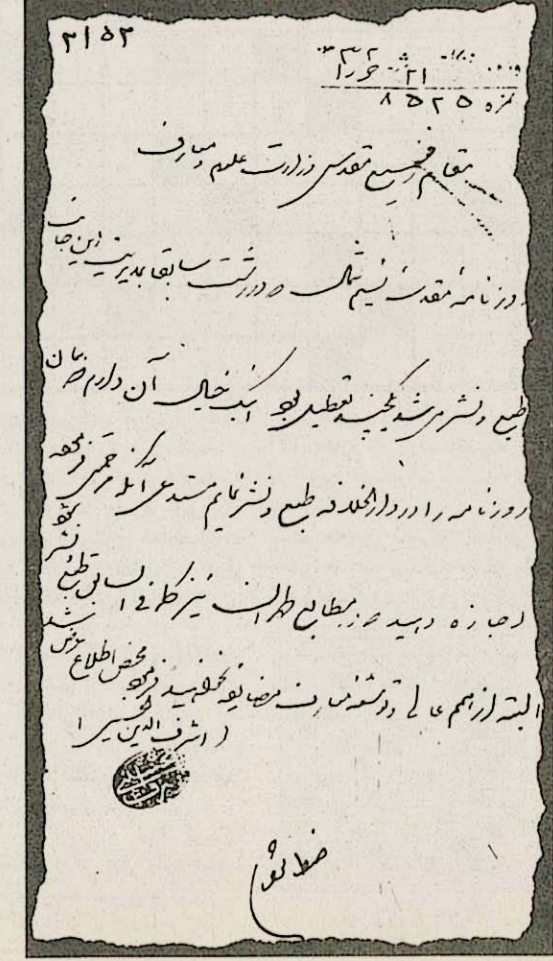 ۳۱۵۳
۲۱
نمره ۸۵۲۵
مقام رفیع مقدس وزارت علوم و معارف
روزنامه مقدسه نسیم شمال که در رشت سابقا بمدیریت این جانب
طبع و نشر می شد تعطیل بود اینک خیال آن دارم همان
روزنامه را در دارالخلافه طبع و نشر نمایم مستدعی آنکه مرحمتی فرموده
اجازه دهید در مطابع طهران نیز کما فی السابق طبع و نشر شود
البته از اهم عالی مضایقه نخواهید فرمود محض اطلاع عرض شد
(اشرف الدین الحسینی)
ضبط شود